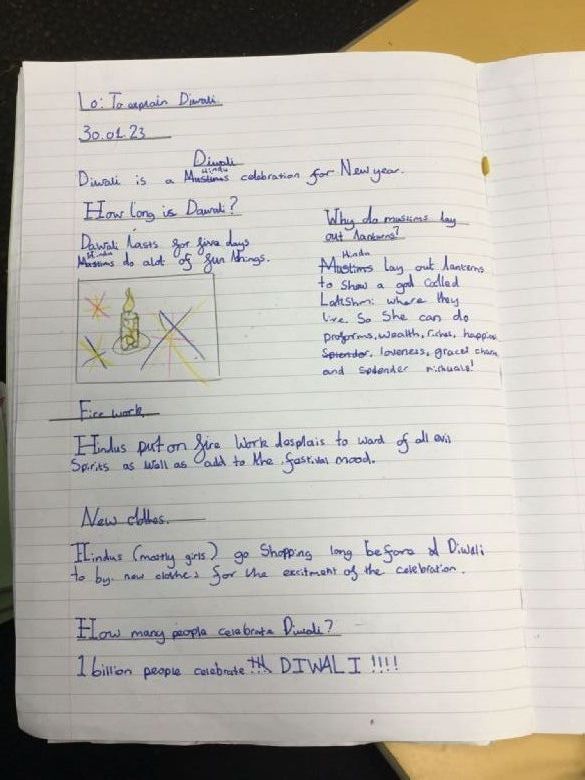 Lo: To explain Diwali.
30.01.23
Diwali
Diwali is a Muslims Hindu celebration for New year.
How long is Dawali?
Dawali lasts for five days
Hindu
Muslims do alot of fun things.
Why do muslims lay
out lanterns?
Hindu
Muslims lay out lanterns
to show a god called
Lakshmi where they
live. So She can do
proforms, wealth, riches, happies
Splender, loveness, grace, charm
and splender richuals!
Fire work
Hindus put on fire work desplais to ward of all evil
Spirits as well as add to the festival mood.
New clothes.
Hindus (mostly girls) go Shopping long before d Diwali
to by new clothes for the excitment of the celebration.
How many people celebrate Diwali?
1 billion people celebrate !!! DIWALI !!!!